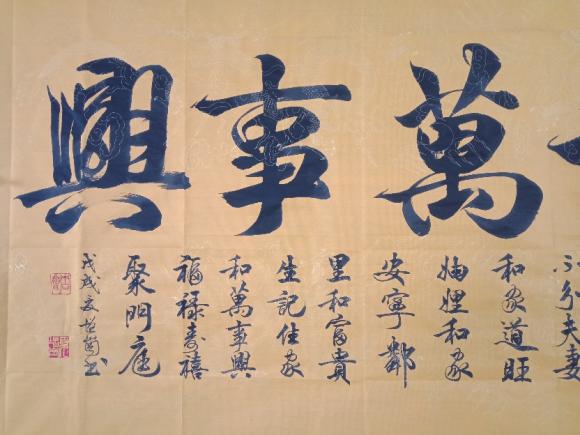 萬事興
分夫妻
和家道旺
妯娌和家
安寧鄰
里和富貴
生記住家
和萬事興
福祿壽禧
聚門庭
戊戌夏书